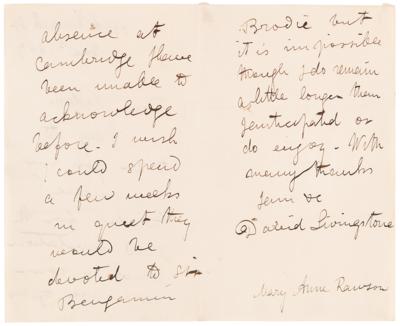 absence at
Cambridge I have
been unable to
acknowledge
before. I wish
I could spend
a few weeks
in quiet they
would be
devoted to Sir
Benjamin
Brodie but
it is impossible
though I do remain
a little longer than
I anticipated or
do enjoy. With
many thanks
I am &c
David Livingstone
Mary Anne Rawson